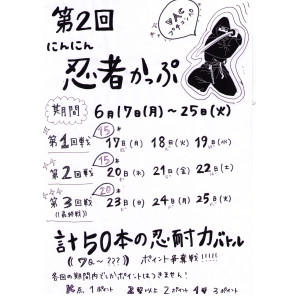 第2回
にんにん
忍者かっぷ
期間 6月17日(月)～25日(火)
15本
第1回戦 17日(月) 18日(火) 19日(水)
15本
第2回戦 20日(木) 21日(金) 22日(土)
20本
第3回戦 23日(日) 24日(月) 25日(火)
((最終戦))
計50本の忍耐力バトル
ポイント争奪戦!!!!!
各回の期間内でしかポイントはつきません!
1ポイント